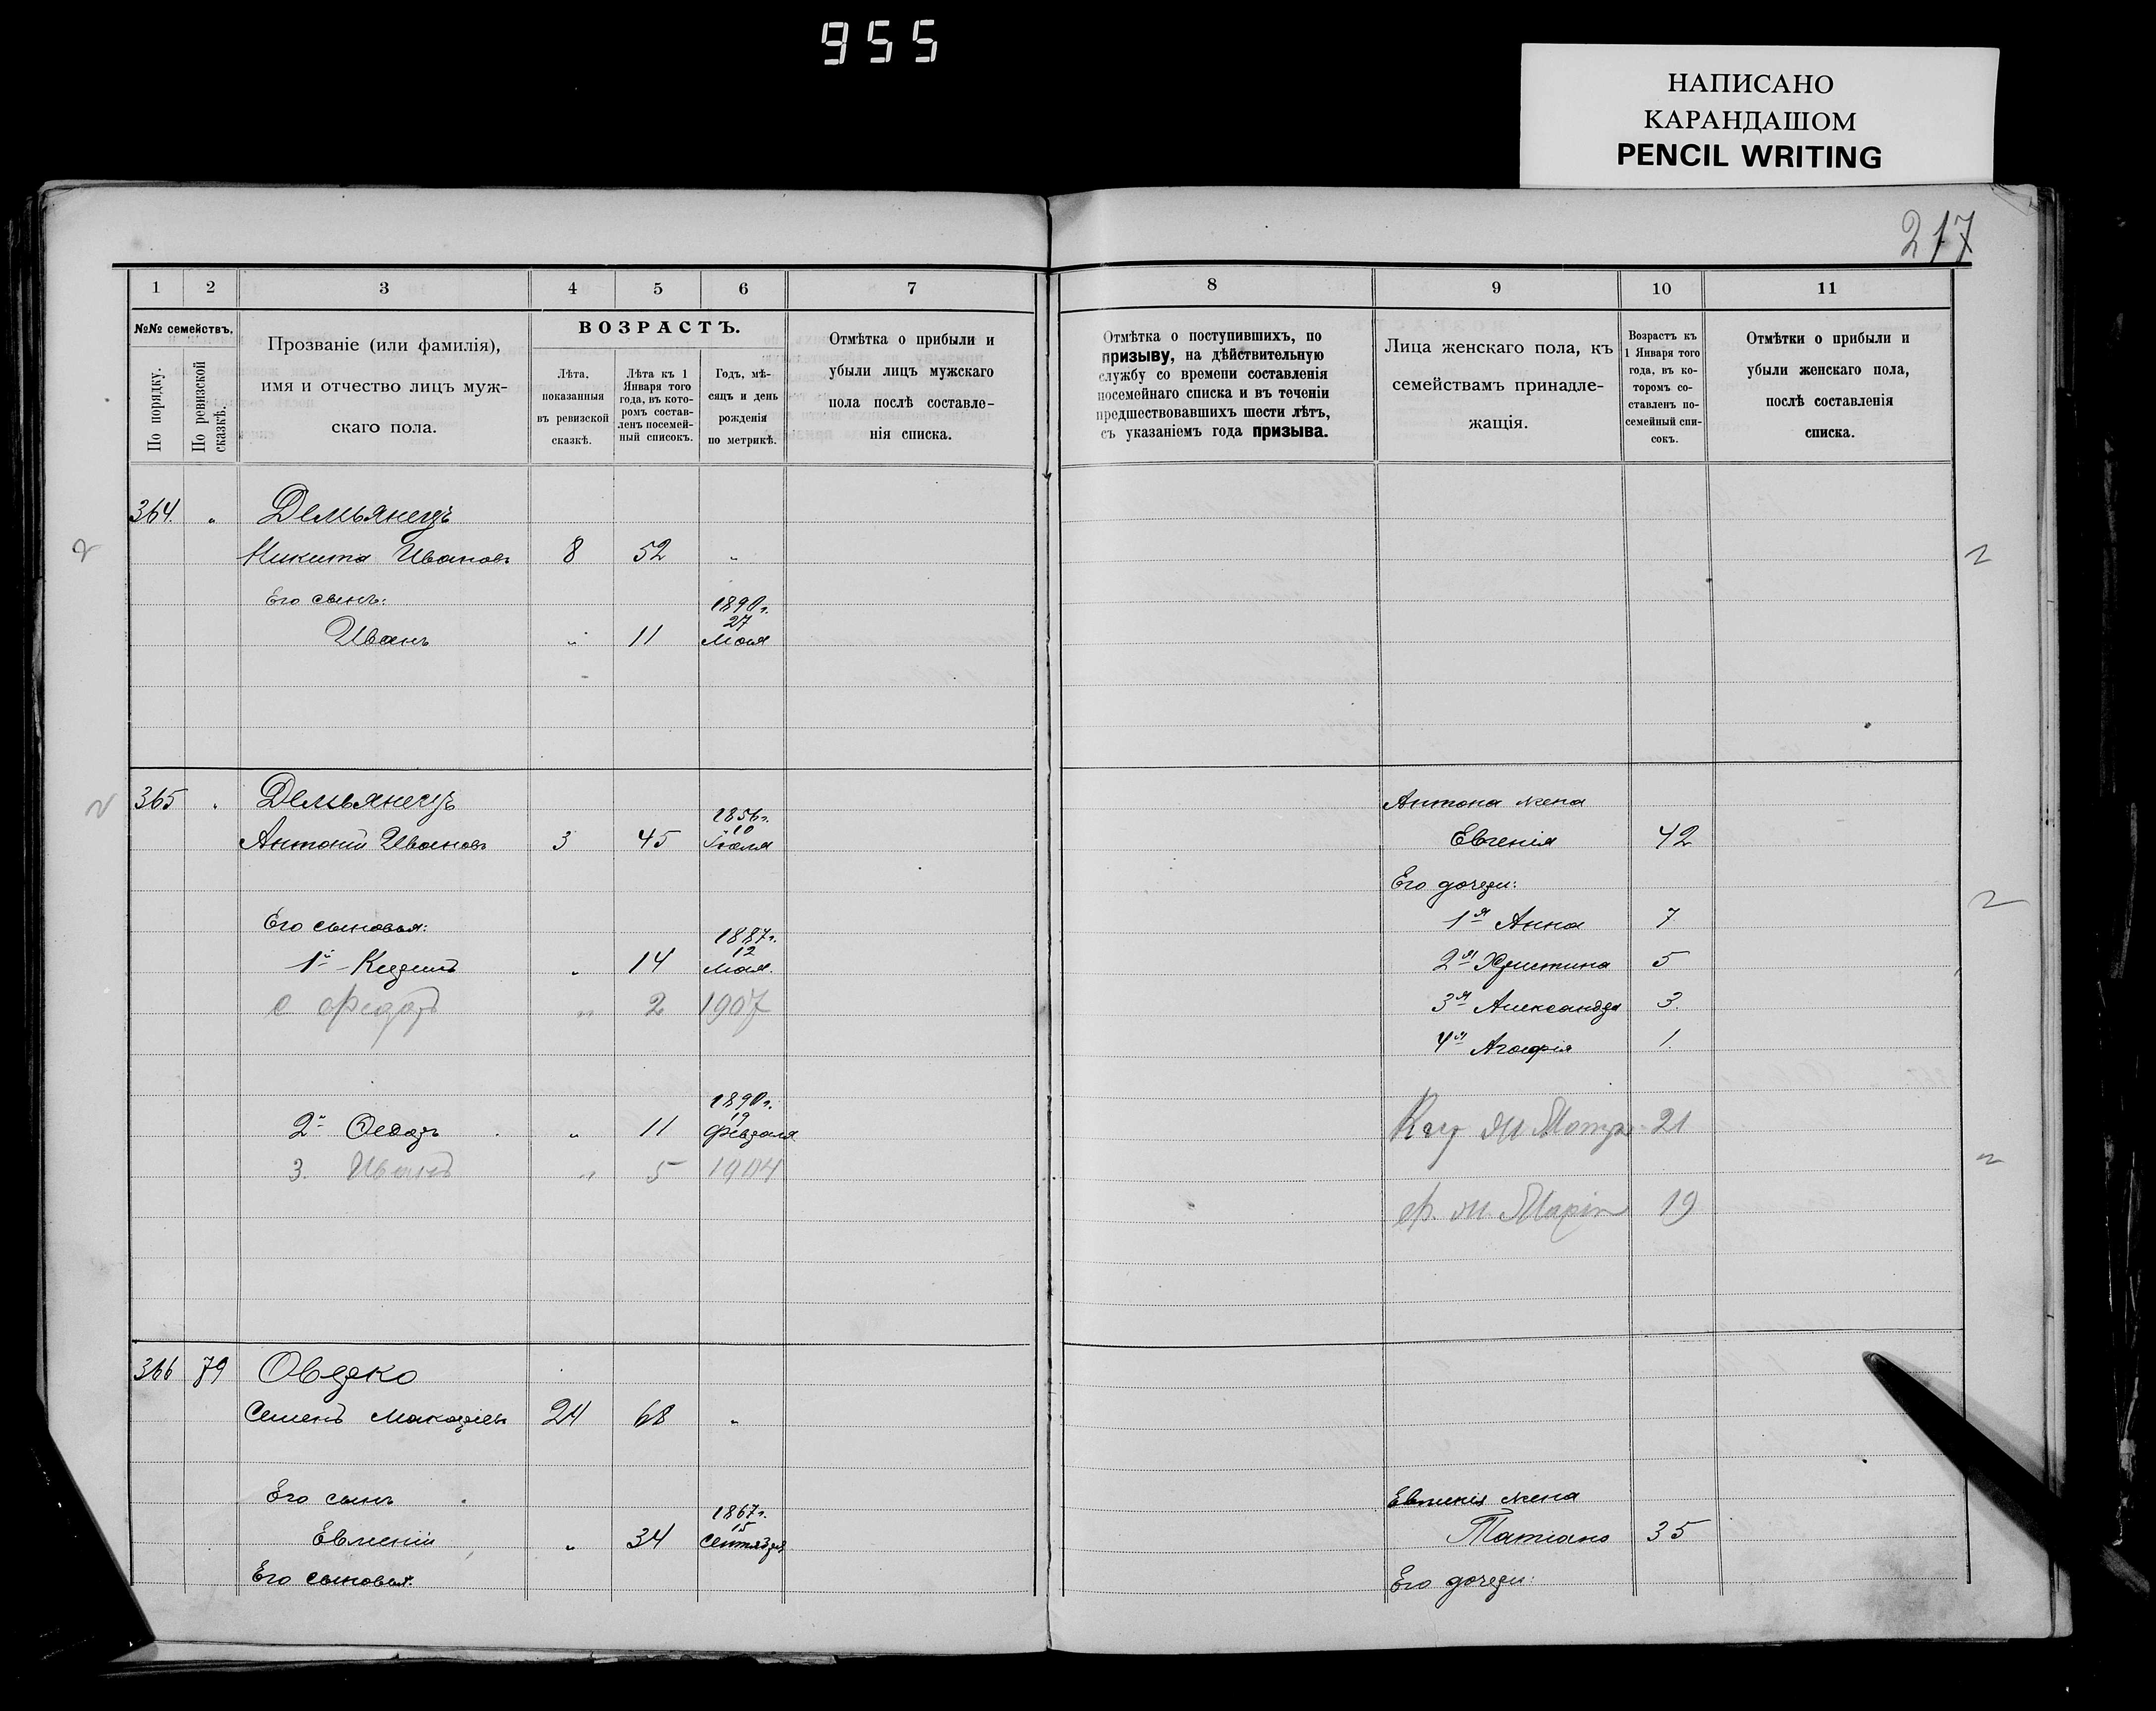 955
НАПИСАНО
КАРАНДАШОМ
PENCIL WRITING
217
1 2 3 4 5 6 7
№№ семействъ.
По порядку.
По ревизской сказкѣ.
Прозваніе (или фамилія),
имя и отчество лицъ муж-
скаго пола.
ВОЗРАСТЪ.
Лѣта.
показанныя
въ ревизской
сказкѣ.
Лѣта къ 1
Января того
года, въ кото-
ромъ состав-
ленъ посемей-
ный списокъ.
Годъ, мѣ-
сяцъ и день
рожденія
по метрикѣ.
Отмѣтка о прибыли и
убыли лицъ мужскаго
пола послѣ составле-
нія списка.
364. " Демьянецъ
Никита Ивановъ 8 52 "
Его сынъ:
Иванъ " 11 1890 г. 27 Мая
365 " Демьянецъ
Антоній Ивановъ 3 45 1856 г. 10 Іюля
Его сыновья:
1й 14 1887 г. 12 Мая.
с Федотъ " 2 1907
2й Ѳедоръ " 11 1890 г. 19 Февраля
3. Иванъ " 5 1904
366 79 Овдеко
Семенъ Макаріевъ 24 68 "
Его сынъ
Евменій " 34 1867 г. 15 Сентября
Его сыновья:
8 9 10 11
Отмѣтка о поступившихъ, по
призыву, на дѣйствительную
службу со времени составленія
посемейнаго списка и въ теченіи
предшествовавшихъ шести лѣтъ,
съ указаніемъ года призыва.
Лица женскаго пола, къ
семействамъ принадле-
жащія.
Возрастъ къ
1 Января того
года, въ ко-
торомъ со-
ставленъ по-
семейный спи-
сокъ.
Отмѣтки о прибыли и
убыли женскаго пола,
послѣ составленія
списка.
Антона жена
Евгенія 42
Его дочери:
1я Анна 7
2я Христина 5
3я Александра 3.
4я Агафія 1.
21
Ф. ж. Марія 19
Евменія жена
Татіана 35
Его дочери: